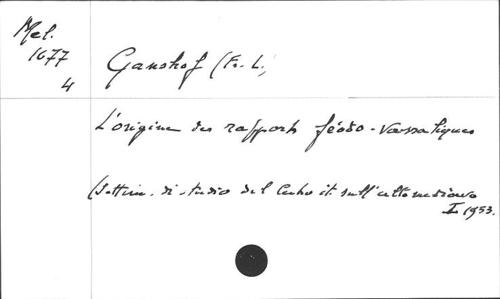 Mel.
1677
4
Ganshof (Fr. L.)
L'origine des rapports féodo-vassaliques
(Settim. di studio del Centro it. sull'alto medioevo
I 1953.